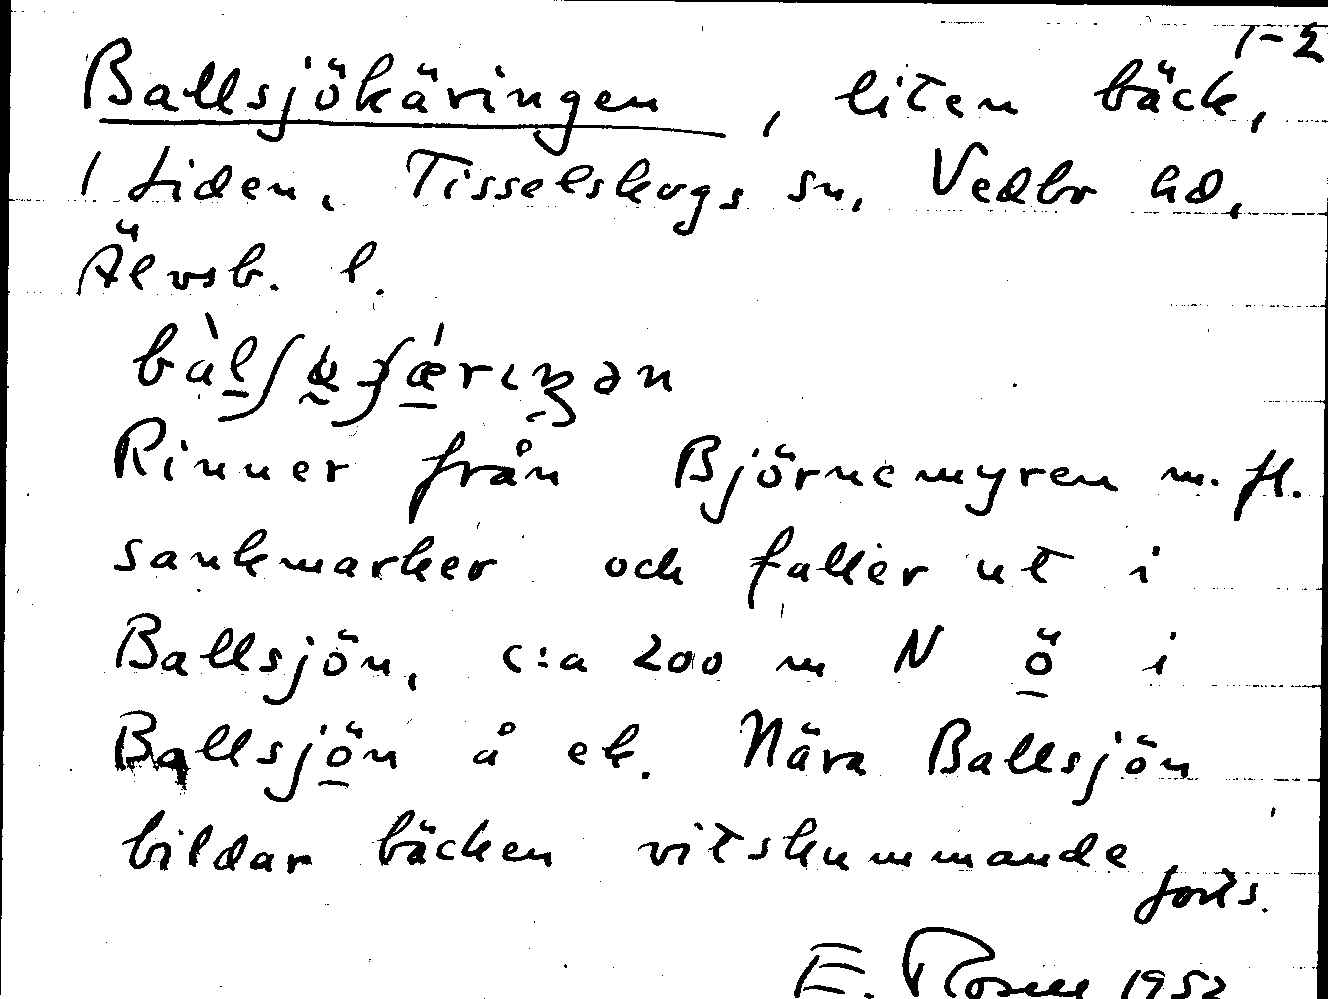 1-2
Ballsjökäringen, liten bäck,
1 tiden, Tisselskogs sn, Vedbo hd,
Älvsb. l.
Rinner från Björnemyren m. fl.
sankmarker och faller ut i
Ballsjön, c:a 200 m N ö i
Ballsjön å ek. Nära Ballsjön
bildar bäcken vitskummande
forts.
E. Rosell 1952